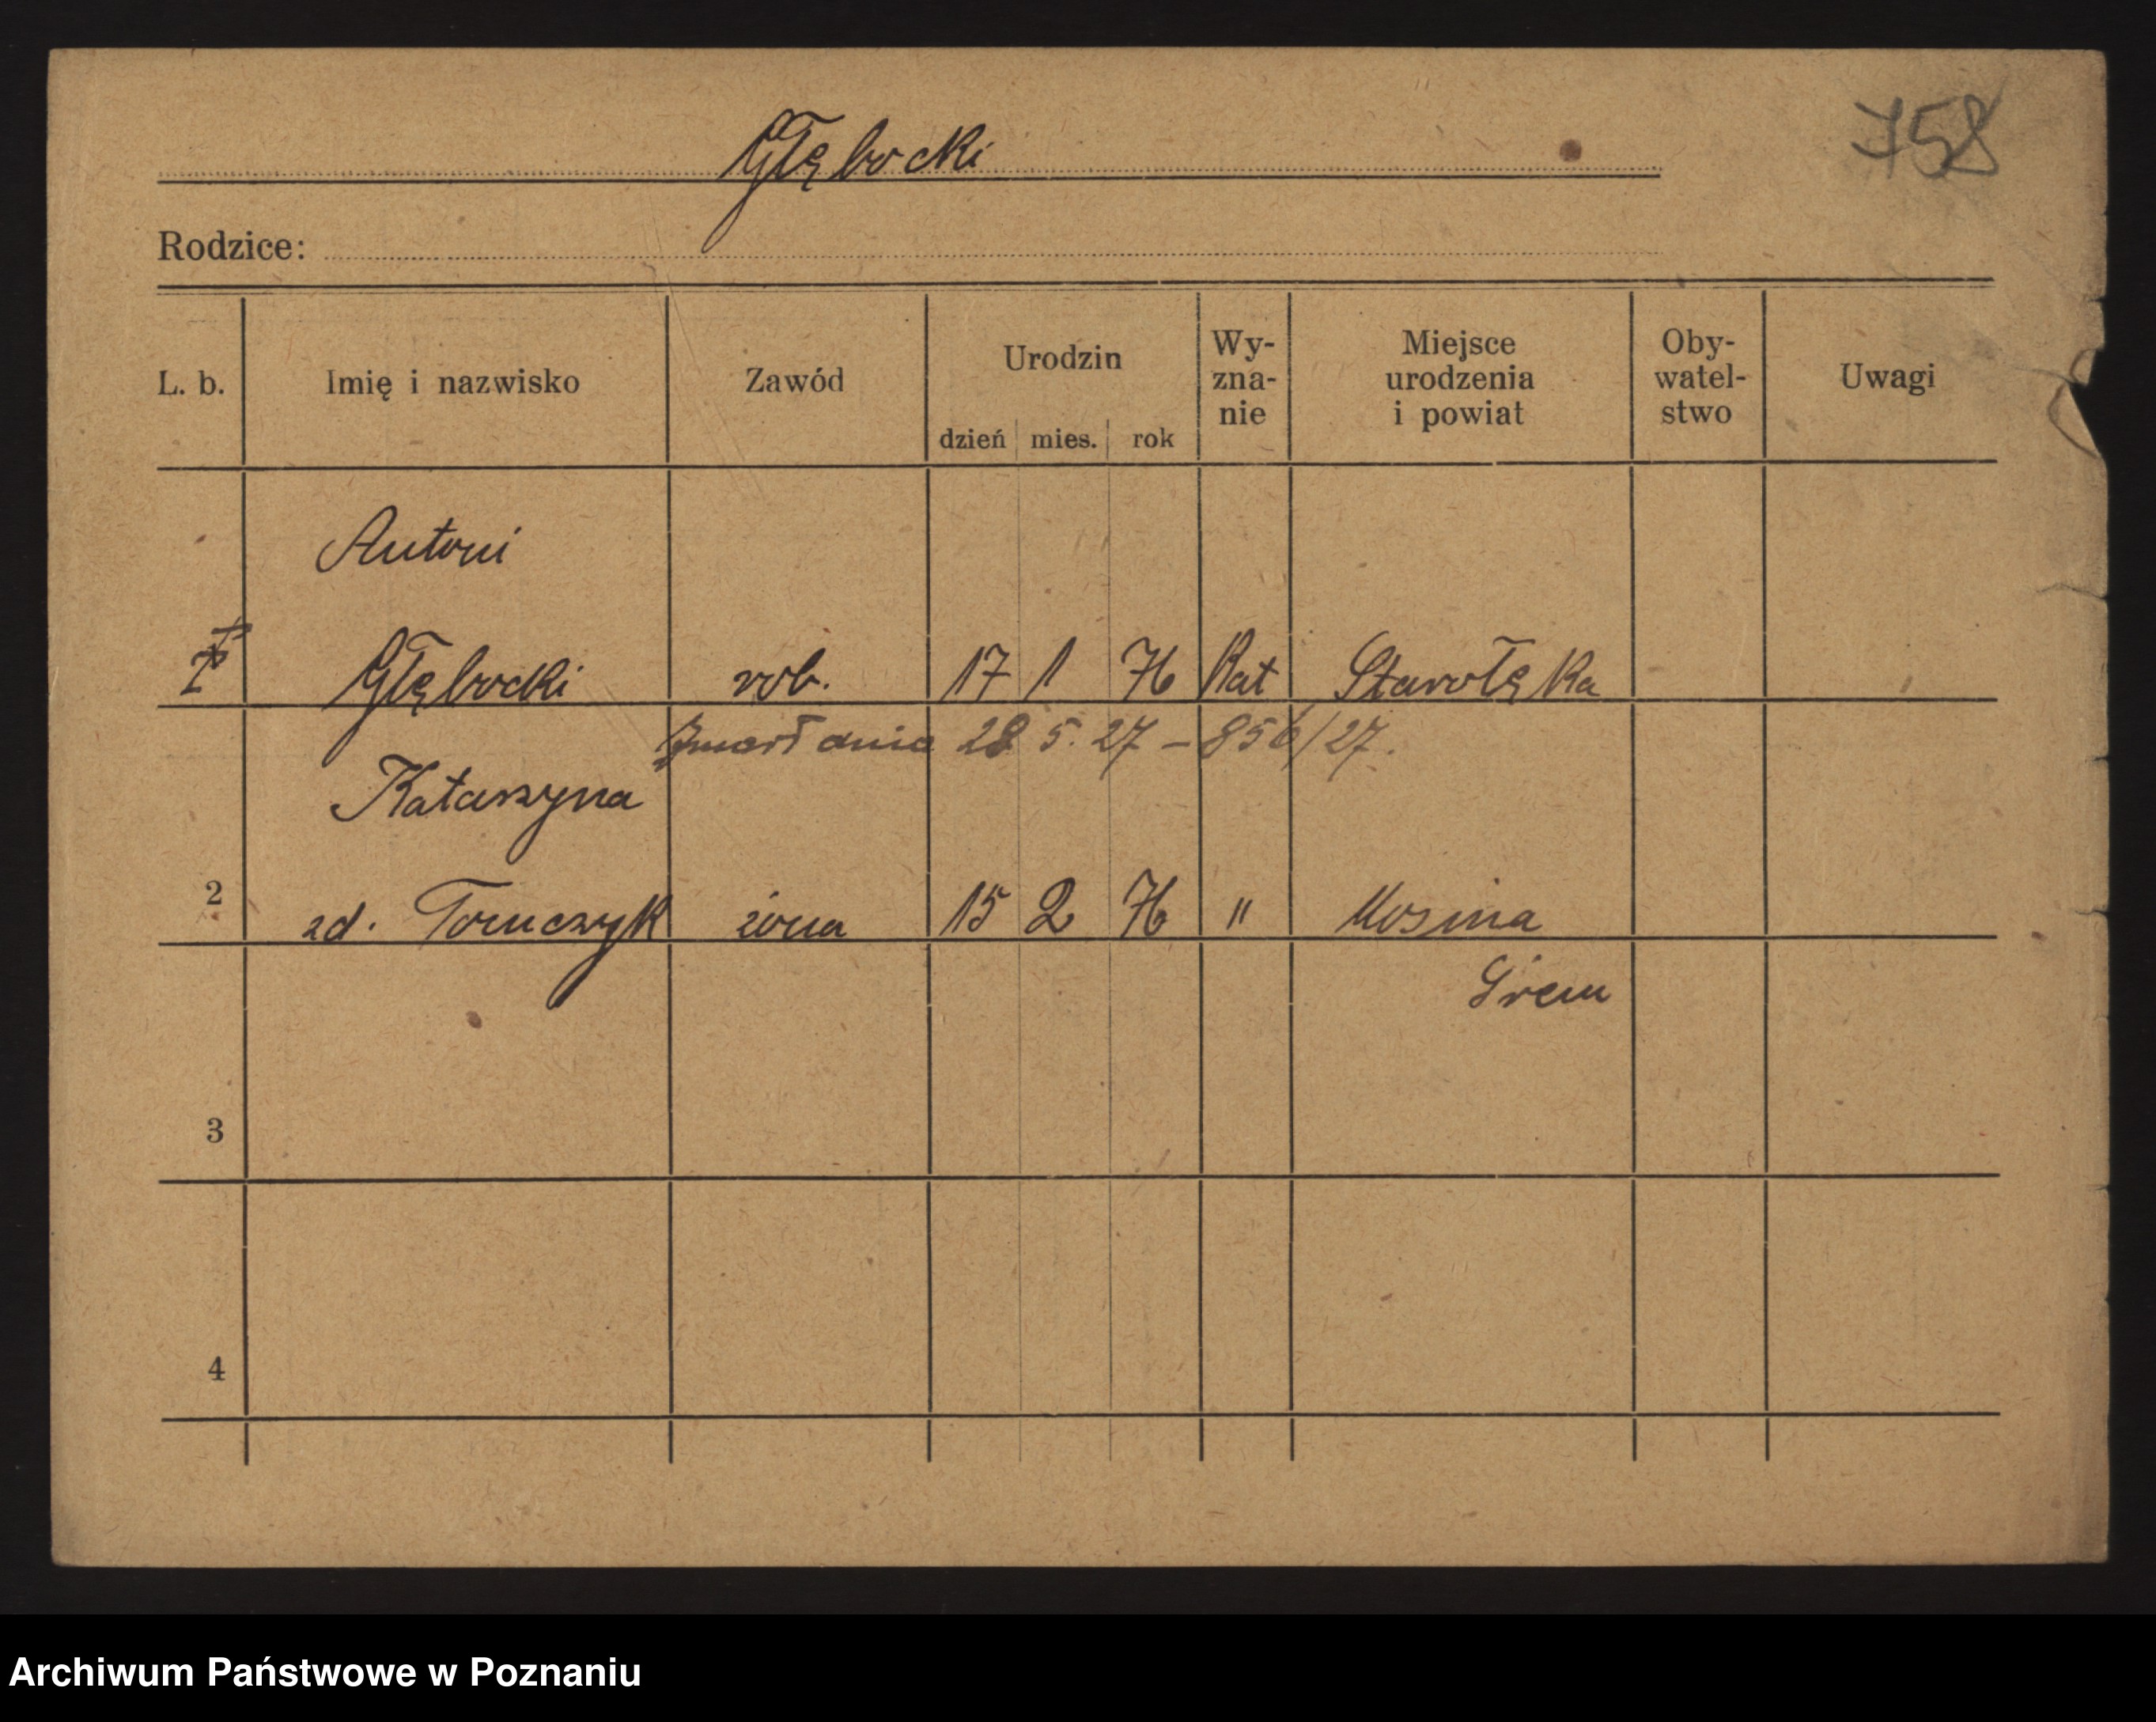 Głębocki
758
Rodzice:
L. b. Imię i nazwisko Zawód Urodzin dzień mies. rok Wy-zna-nie Miejsce urodzenia i powiat Oby-watel-stwo Uwagi
Antoni
1 Głębocki rob. 17 1 76 Kat Starołęka
Zmarł dnia 28 5. 27 – 856/27.
Katarzyna
2 zd. Tomczyk żona 15 2 76 " Mosina
Śrem
3
4
Archiwum Państwowe w Poznaniu